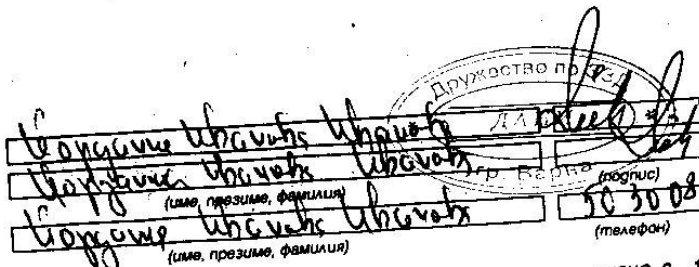 Дружество по ЗЗД
гр. Варна
Йорданка Иванова Иванова
Йорданка Иванова Иванова
(подпис)
(име, презиме, фамилия)
Йорданка Иванова Иванова
50 30 08
(име, презиме, фамилия)
(телефон)